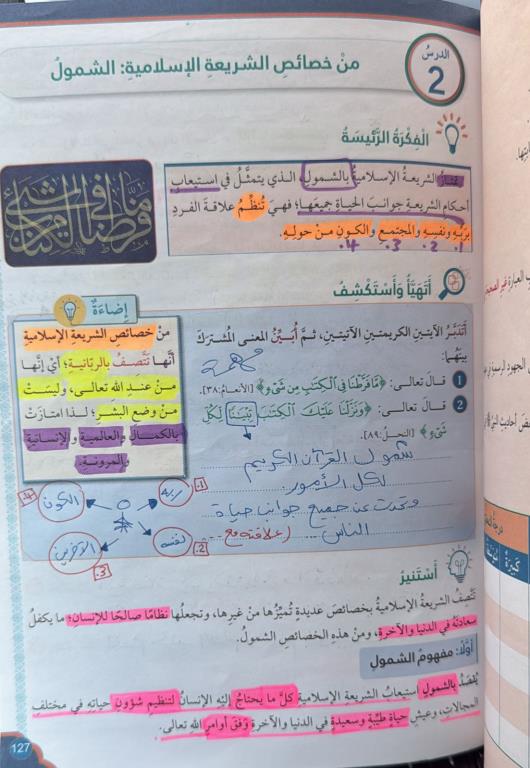 الدرسُ
2
منْ خصائصِ الشريعةِ الإسلاميةِ: الشمولُ
الْفِكْرَةُ الرَّئيسَةُ
تمتازُ الشريعةُ الإسلاميةُ بالشمولِ، الذي يتمثَّلُ في استيعابِ
أحكامِ الشريعةِ جوانبَ الحياةِ جميعَها؛ فهيَ تُنظِّمُ علاقةَ الفردِ
بربِّهِ ونفسِهِ والمجتمعِ والكونِ منْ حولِهِ.
1. 2. 3. 4.
أَتَهَيَّأُ وَأَسْتَكْشِفُ
أَتدبَّرُ الآيتينِ الكريمتينِ الآتيتينِ، ثمَّ أُبيِّنُ المعنى المُشترَكَ
بينَهُما:
مهمة
1 قالَ تعالى: ﴿مَّا فَرَّطْنَا فِي ٱلْكِتَٰبِ مِن شَيْءٍ﴾ [الأنعامُ: ٣٨].
2 قالَ تعالى: ﴿وَنَزَّلْنَا عَلَيْكَ ٱلْكِتَٰبَ تِبْيَٰنًا لِّكُلِّ
شَيْءٍ﴾ [النحلُ: ٨٩].
شمول القرآن الكريم
لكل الأمور.
وتحدث عن جميع جوانب حياة
الناس
(علاقته مع
1. ربه
2. نفسه
3. الآخرين
4. الكون
إضاءَةٌ
منْ خصائصِ الشريعةِ الإسلاميةِ
أنَّها تتَّصفُ بالربّانيةِ؛ أيْ إنَّها
منْ عندِ اللهِ تعالى، وليسَتْ
منْ وضعِ البشرِ؛ لذا امتازَتْ
بالكمالِ والعالميةِ والإنسانيةِ
والمرونةِ.
أَسْتَنيرُ
تتَّصِفُ الشريعةُ الإسلاميةُ بخصائصَ عديدةٍ تُميِّزُها منْ غيرِها، وتجعلُها نظامًا صالحًا للإنسانِ؛ ما يكفلُ
سعادتَهُ في الدنيا والآخرةِ، ومنْ هذهِ الخصائصِ الشمولُ.
أوَّلًا: مفهومُ الشمولِ
يُقصَدُ بالشمولِ استيعابُ الشريعةِ الإسلاميةِ كلَّ ما يحتاجُ إليْهِ الإنسانُ لتنظيمِ شؤونِ حياتِهِ في مختلفِ
المجالاتِ، وعيشِ حياةٍ طيِّبةٍ وسعيدةٍ في الدنيا والآخرةِ وَفقَ أوامرِ اللهِ تعالى.
127